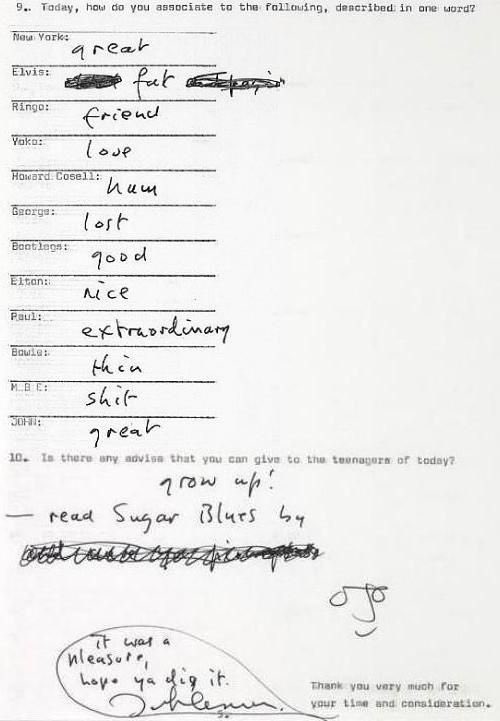 9. Today, how do you associate to the following, described in one word?
New York: great
Elvis: fat
Ringo: friend
Yoko: love
Howard Cosell: ham
George: lost
Bootlegs: good
Elton: nice
Paul: extraordinary
Bowie: thin
M.B.E: shit
JOHN: great
10. Is there any advise that you can give to the teenagers of today?
grow up!
— read Sugar Blues by
it was a
pleasure,
hope ya dig it.
John Lennon
5.
Thank you very much for
your time and consideration.